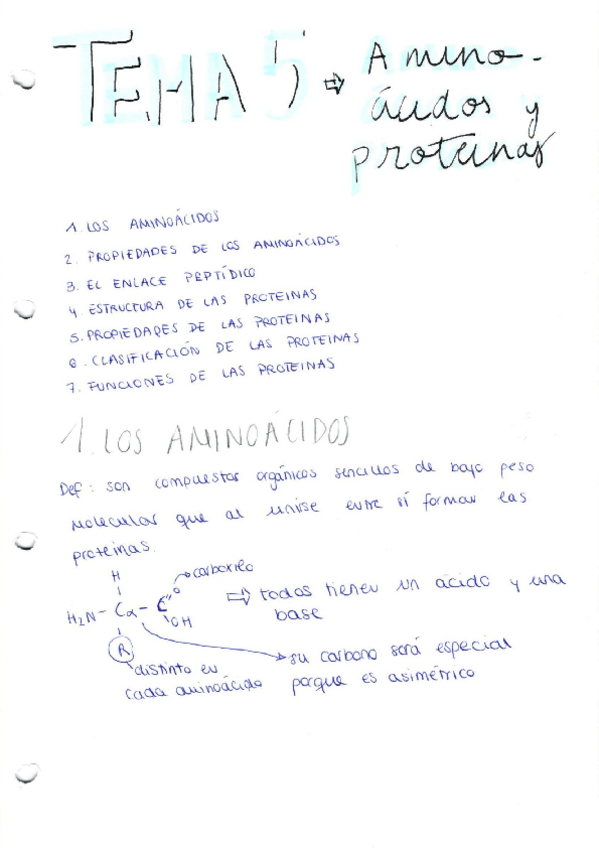 TEMA 5 ⇒ Amino-
ácidos y
proteinas
1. LOS AMINOÁCIDOS
2. PROPIEDADES DE LOS AMINOÁCIDOS
3. EL ENLACE PEPTÍDICO
4. ESTRUCTURA DE LAS PROTEINAS
5. PROPIEDADES DE LAS PROTEINAS
6. CLASIFICACIÓN DE LAS PROTEINAS
7. FUNCIONES DE LAS PROTEINAS
1. LOS AMINOÁCIDOS
Def: son compuestos orgánicos sencillos de bajo peso
molecular que al unirse entre sí forman las
proteinas.
H
carboxilo
H₂N - Cα - C O
OH
R
⇒ todos tienen un ácido y una
base
su carbono será especial
porque es asimétrico
distinto en
cada aminoácido